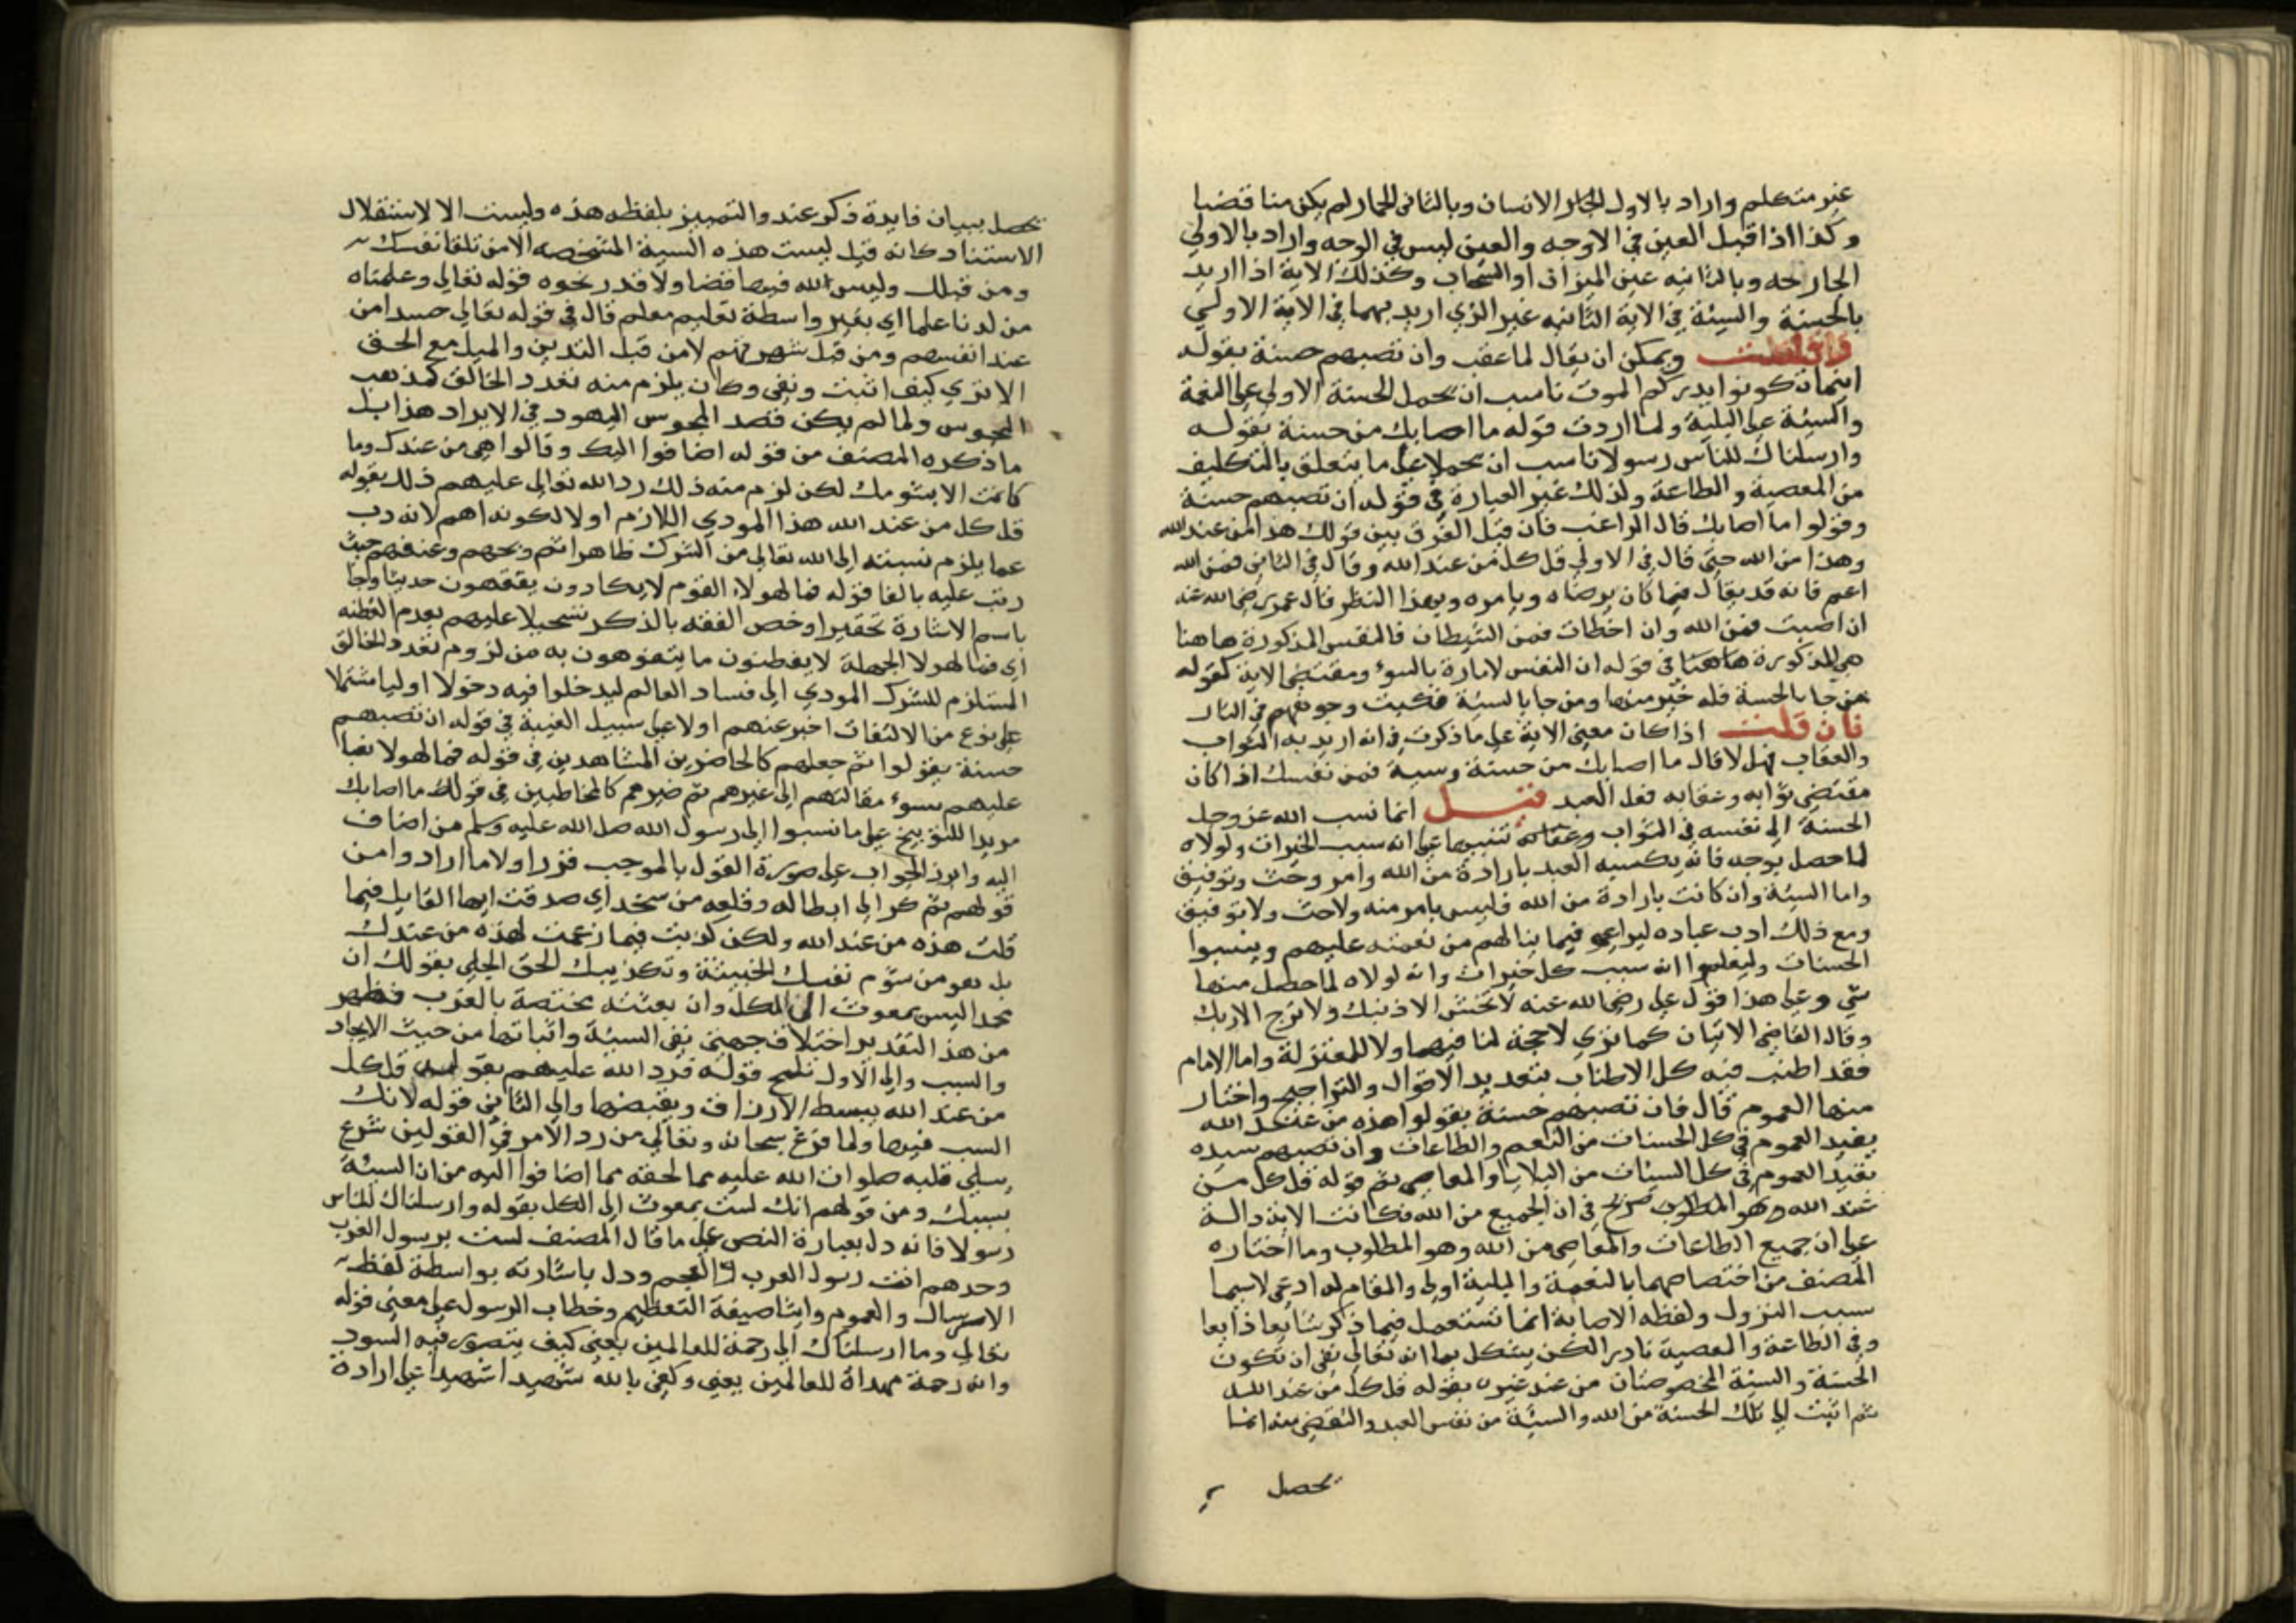 غير متكلم واراد بالاول الحار الانسان وبالثاني الحمار لم يكن مناقضا
وكذا اذا قيل العين في الاوجه والعين ليس في الوجه واراد بالاولي
الجارحه وبالثانيه عين الميزان او السحاب وكذلك الاية اذا اريد
بالحسنة والسيئة في الاية الثانيه غير الذي اريد بهما في الاية الاولي
ويمكن ان يقال لما عقب وان تصبهم حسنة بقوله
اينما تكونوا يدرككم الموت ناسب ان تحمل الحسنة الاولي علي النعمة
والسيئة علي البلية ولما اردف قوله ما اصابك من حسنة بقوله
وارسلناك للناس رسولا ناسب ان يحملا علي ما يتعلق بالتكليف
من المعصية والطاعة ولذلك غير العبارة في قوله ان تصبهم حسنة
وقولوا ما اصابك قال الراغب فان قيل الفرق بين قولك هذا من عند الله
وهذا من الله حتي قال في الاولي قل كل من عند الله وقال في الثاني فمن الله
اعم فانه قد يقال فيما كان يرضاه ويامره وبهذا النظر قال عمر رضي الله عنه
ان اصبت فمن الله وان اخطات فمن الشيطان فالنفس المذكورة هاهنا
هي المذكورة هاهنا في قوله ان النفس لامارة بالسوء ومقتضي الاية كقوله
من جا بالحسنة فله خير منها ومن جا بالسيئة فكبت وجوههم في النار
فان قلت اذا كان معني الاية علي ما ذكرت في انه اريد به الثواب
والعقاب فهل لا قال ما اصابك من حسنة وسية فمن نفسك اذا كان
مقتضي ثوابه وعقابه فعل العبد قيل انما نسب الله عز وجل
الحسنة الي نفسه في الثواب وعقابه تنبيها علي انه سبب الخيرات ولولاه
لما حصل بوجه فانه يكسبه العبد بارادة من الله وامر وحث وتوفيق
واما السيئة وان كانت بارادة من الله فليس بامر منه ولا حث ولا توفيق
ومع ذلك ادب عباده ليراعوا فيما ينالهم من نعمته عليهم وينسبوا
الحسنات وليعلموا انه سبب كل خيرات وانه لولاه لما حصل منها
شي وعلي هذا قول علي رضي الله عنه لا تخش الا ذنبك ولا ترج الا ربك
وقال القاضي الاتيان كما تري لا حجة لنا فيهما ولا للمعتزلة واما الامام
فقد اطنب فيه كل الاطناب بتعديد الاقوال والتراجيح واختار
منها العموم قال فان تصبهم حسنة يقولوا هذه من عند الله
يفيد العموم في كل الحسنات من النعم والطاعات وان تصبهم سيده
تفيد العموم في كل السيئات من البلايا والمعاصي ثم قوله قل كل من
عند الله وهو المطلوب صريح في ان الجميع من الله فكانت الاية دالة
علي ان جميع الطاعات والمعاصي من الله وهو المطلوب وما اختاره
المصنف من اختصاصهما بالنعمة والبلية اولي والمقام له ادعي لاسيما
سبب النزول ولفظه الاصابة انما تستعمل فيما ذكر شايعا ذايعا
وفي الطاعة والمعصية نادرا لكن يشكل بما انه تعالي نفي ان تكون
الحسنة والسيئة المخصوصتان من عند غيره بقوله قل كل من عند الله
ثم اثبت ان تلك الحسنة من الله والسيئة من نفس العبد والتقضي منه انما
تحصل
تحصل ببيان فايدة ذكر عند والتمييز بلفظه هذه وليست الا لاستقلال
الاستناد كانه قيل ليست هذه السيئة المتشخصه الا من تلقا نفسك
ومن قبلك وليس لله فيها قضا ولا قدر نحوه قوله تعالي وعلمناه
من لدنا علما اي بغير واسطة تعليم معلم قال في قوله تعالي حسدا من
عند انفسهم ومن قبل شهوتهم لا من قبل التدين والميل مع الحق
الا تري كيف اثبت ونفي وكان يلزم منه تعدد الخالق كمذهب
المجوس ولما لم يكن قصد المجوس اليهود في الايراد هذا بل
ما ذكره المصنف من قوله اضافوا اليك وقالوا هي من عندك وما
كانت الا بشومك لكن لزم منه ذلك رد الله تعالي عليهم ذلك بقوله
قل كل من عند الله هذا المودي اللازم اولا لكونه اهم لانه ذب
عما يلزم نسبته الي الله تعالي من الشرك ظاهرا ثم وبخهم وعنفهم حيث
رتب عليه بالفا قوله فما لهولاء القوم لا يكادون يفقهون حديثا وجا
باسم الاشارة تحقيرا وخص الفقه بالذكر تسجيلا عليهم بعدم الفطنه
اي فما لهولا الجهلة لا يفطنون ما يتفوهون به من لزوم تعدد الخالق
المستلزم للشرك المودي الي فساد العالم ليدخلوا فيه دخولا اوليا مشتملا
علي نوع من الالتفات اخبر عنهم اولا علي سبيل الغيبة في قوله ان تصبهم
حسنة يقولوا ثم جعلهم كالحاضرين المشاهدين في قوله فما لهولا نعيا
عليهم بسوء مقالتهم الي غيرهم ثم صيرهم كالمخاطبين في قوله ما اصابك
مزيدا للتوبيخ علي ما نسبوا الي رسول الله صلي الله عليه وسلم من اضاف
اليه وابرز الجواب علي صورة القول بالموجب قرر اولا ما اراد وا من
قولهم ثم كر الي ابطاله وقلعه من سنخه اي صدقت ايها القايل فيما
قلت هذه من عند الله ولكن كذبت فيما زعمت لهذه من عندك
بل هو من شوم نفسك الخبيثة وتكذيبك الحق الجلي بقولك ان
محمدا ليس بمعوث الي الكل وان بعثته مختصة بالعرب فظهر
من هذا التقدير اختلاف جهتي نفي السيئة واثباتها من حيث الايجاد
والسبب والي الاول تلمح قوله فرد الله عليهم بقوله قل كل
من عند الله يبسط الارزاق ويقبضها والي الثاني قوله لانك
السبب فيها ولما فرغ سبحانه وتعالي من رد الامر في القولين شرع
يسلي قلبه صلوات الله عليه مما لحقه مما اضافوا اليه من ان السيئة
بسببك ومن قولهم انك لست بمعوث الي الكل بقوله وارسلناك للناس
رسولا فانه دل بعبارة النص علي ما قال المصنف لست برسول العرب
وحدهم انت رسول العرب والعجم ودل باشارته بواسطة لفظه
الارسال والعموم وايثا صيغة التعظيم وخطاب الرسول علي معني قوله
تعالي وما ارسلناك الا رحمة للعالمين يعني كيف يتصور فيه السود
وانه رحمة مهداة للعالمين يعني وكفي بالله شهيدا شهيدا علي ارادة